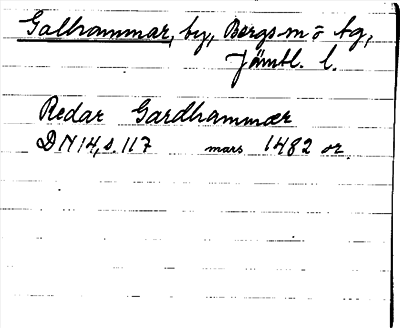 Galhammar, by, Bergs sn o tg,
Jämtl. l.
Redar Gardhammær
DN 14, s. 117 mars 1482 or.